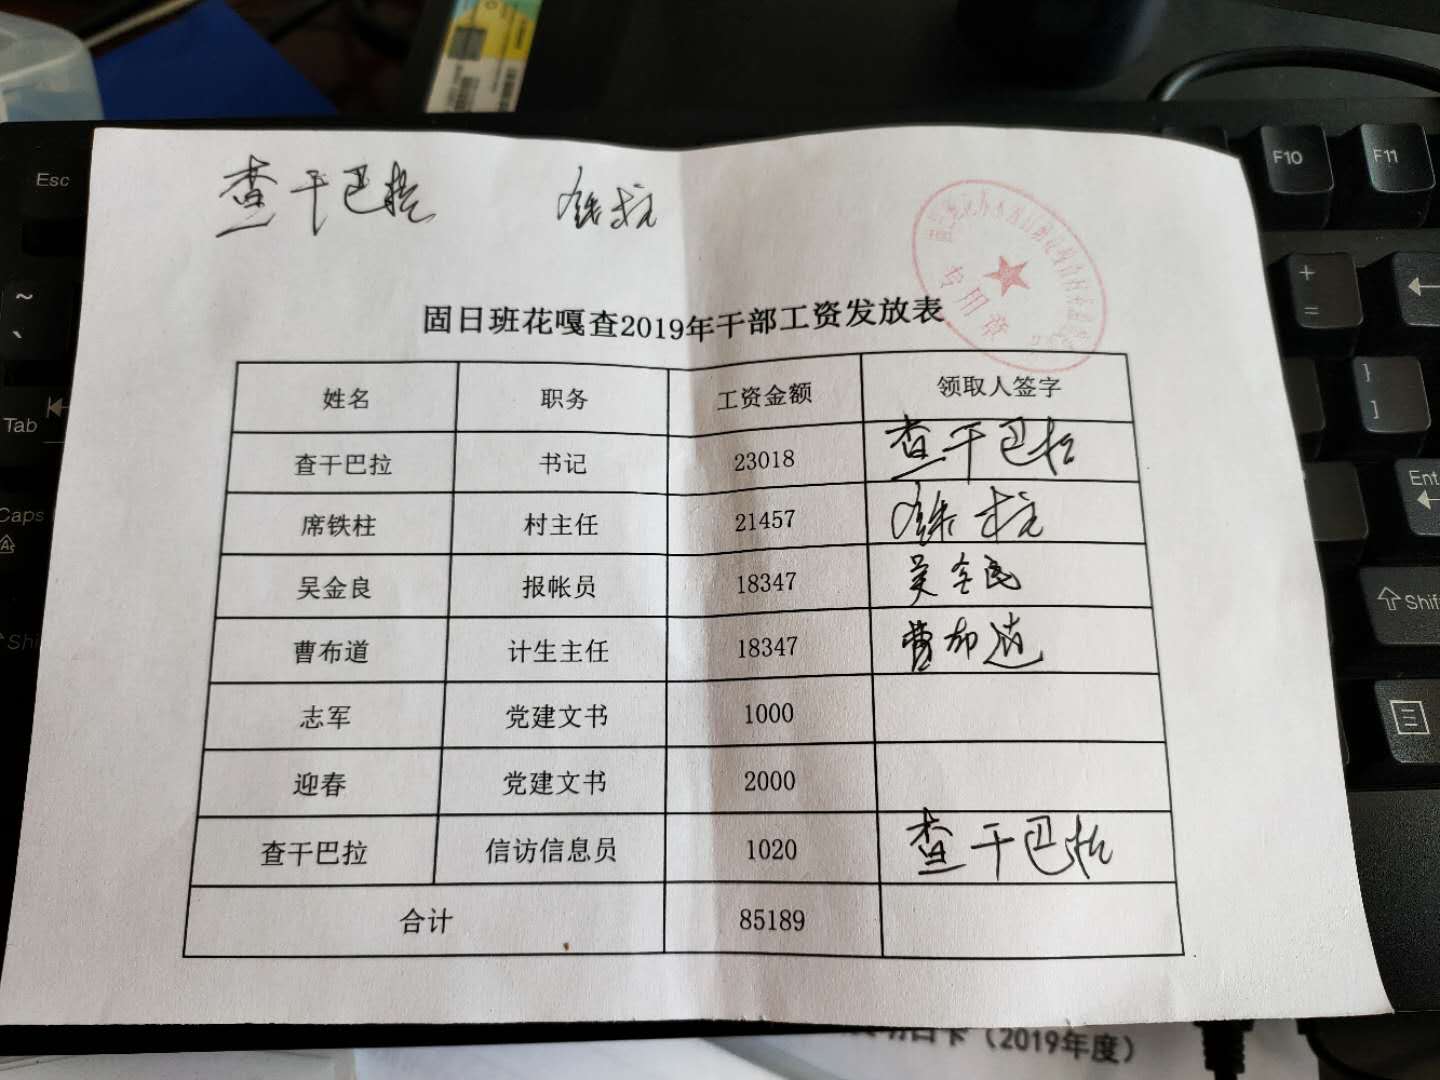 查干巴拉 铁柱
专用章
固日班花嘎查2019年干部工资发放表
姓名 职务 工资金额 领取人签字
查干巴拉 书记 23018 查干巴拉
席铁柱 村主任 21457 铁柱
吴金良 报帐员 18347 吴金良
曹布道 计生主任 18347 曹布道
志军 党建文书 1000
迎春 党建文书 2000
查干巴拉 信访信息员 1020 查干巴拉
合计 85189
(2019年度)
Esc
F10
F11
~
、
+
=
Tab
}
]
Caps
A
Ent
Shif
Shi